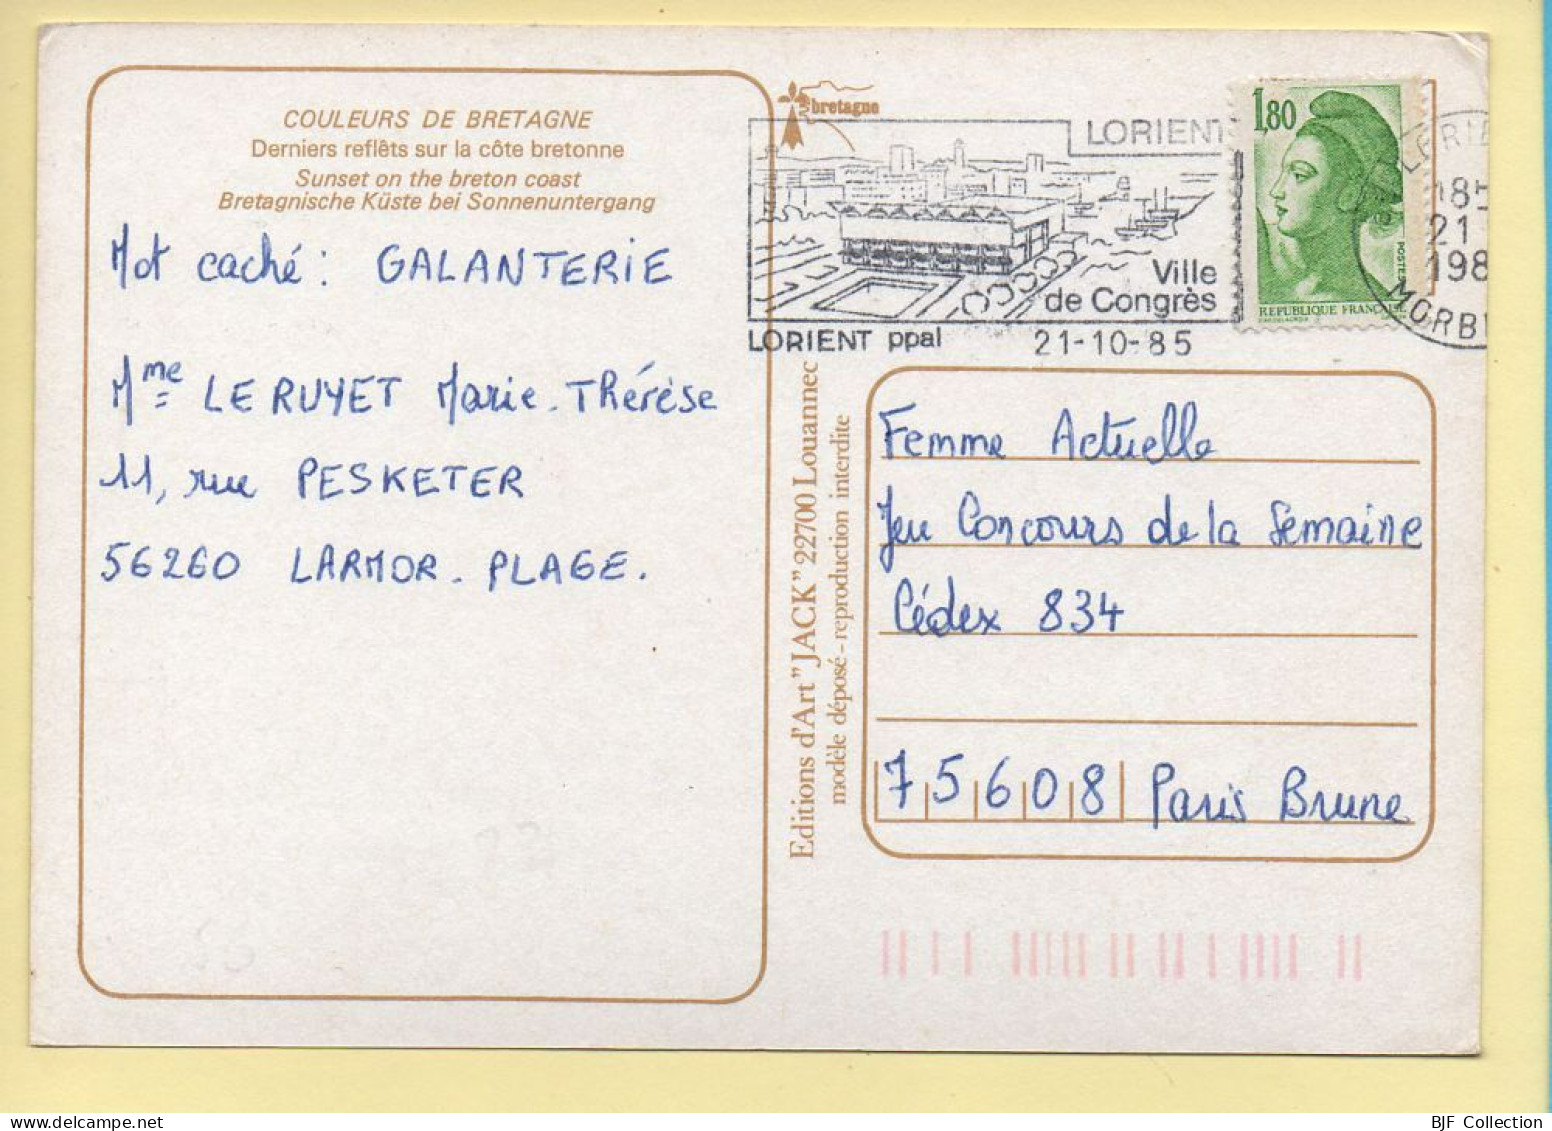 COULEURS DE BRETAGNE
Derniers reflêts sur la côte bretonne
Sunset on the breton coast
Bretagnische Küste bei Sonnenuntergang
Mot caché : GALANTERIE
Mme LE RUYET Marie-Thérèse
11, rue PESKETER
56260 LARMOR-PLAGE.
bretagne
LORIENT
Ville
de Congrès
LORIENT ppal 21-10-85
1,80
POSTES
REPUBLIQUE FRANÇAISE
18H
21
198
MORBI
Editions d'Art "JACK" 22700 Louannec
modèle déposé - reproduction interdite
Femme Actuelle
Jeu Concours de la Semaine
Cédex 834
75608 Paris Brune
BJF Collection